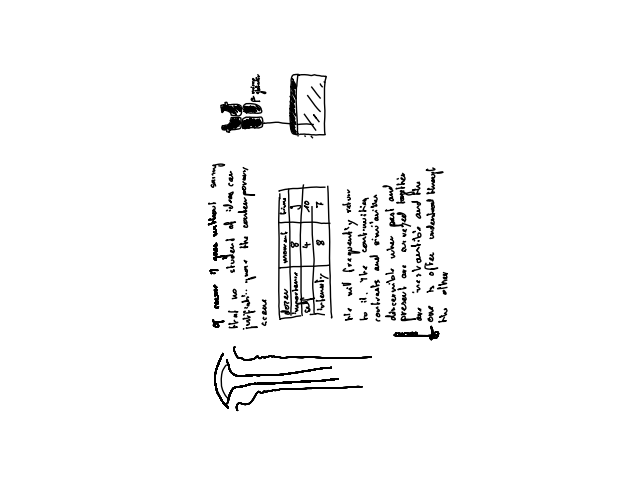 of manner it goes without saying
that no student of ideas can
justifiably ignore the contemporary
scene
dozen moment time
importance 8 9
self 4 10
intensity 8 7
We will frequently return
to it. The continuities
contrasts and similarities
discernible when past and
present are surveyed together
are inexhaustible and the
one is often understood through
the other